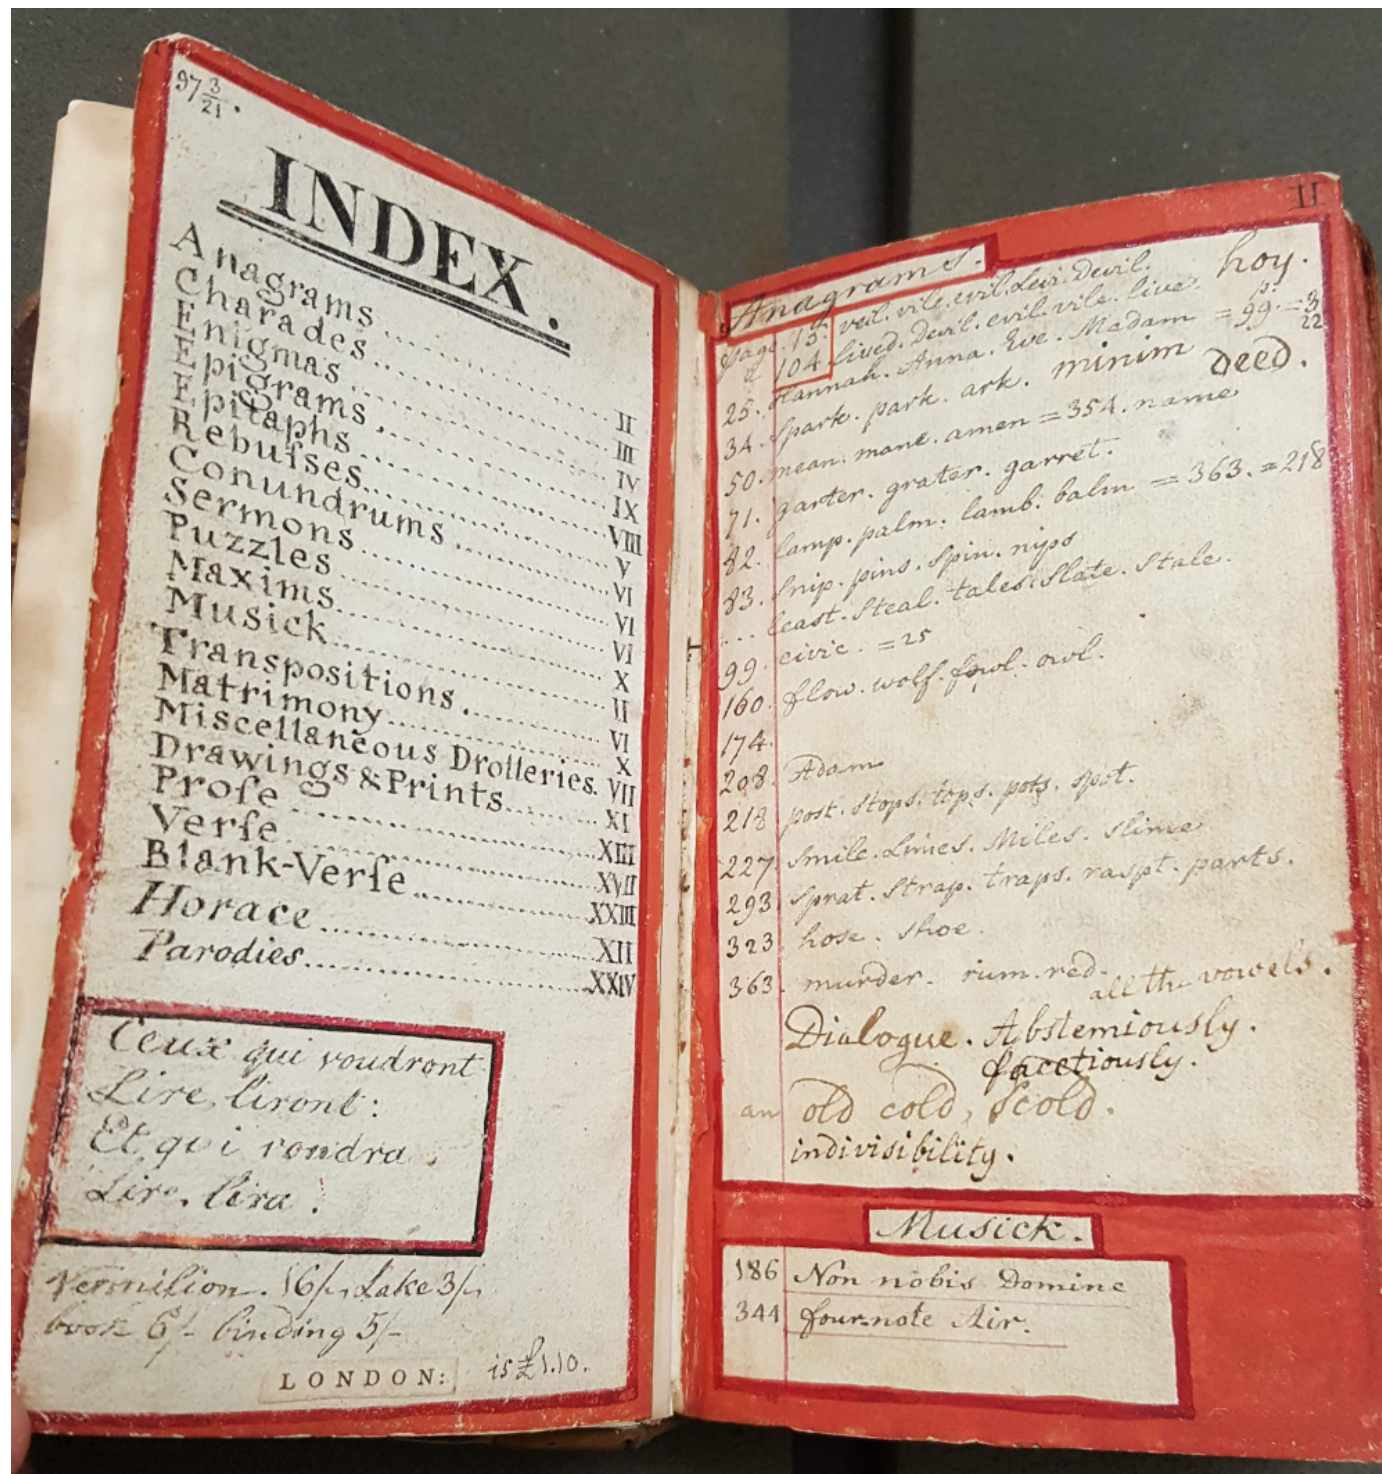 97 3/21.
INDEX.
Anagrams ........ II
Charades ........ III
Enigmas ........ IV
Epigrams ........ IX
Epitaphs ........ VIII
Rebuſses ........ V
Conundrums ........ VI
Sermons ........ VI
Puzzles ........ VI
Maxims ........ X
Musick ........ II
Transpositions ........ VI
Matrimony ........ X
Miscellaneous Drolleries. VII
Drawings & Prints ........ XI
Proſe ........ XIII
Verſe ........ XVII
Blank-Verſe ........ XXIII
Horace ........ XII
Parodies ........ XXIV
Ceux qui voudront
Lire, liront:
Et qui voudra
Lire, lira.
Vermilion. 16/- Lake 3/-
book 6/- binding 5/-
LONDON: is £1.10.
II
Anagrams.
page. 15. veil. vile. evil. Levi. Devil. hoy.
& 104. lived. Devil. evil. vile. live. p.
25. Hannah. Anna. Eve. Madam = 99. = 3/22
34. Spark. park. ark. minim deed.
50. mean. mane. amen = 354. name
71. garter. grater. garret.
82. lamp. palm. lamb. balm = 363. = 218
83. Snip. pins. Spin. nips
... least. Steal. tales. Slate. Stale.
99. civic. = 25
160. flow. wolf. fowl. owl.
174.
208. Adam
218 post. Stops. tops. pots. Spot.
227 Smile. Limes. Miles. Slime
293 Sprat. Strap. traps. raspt. parts.
323 hose. Shoe.
363. murder. rum. red.
all the vowels.
Dialogue. Abstemiously.
facetiously.
an old cold, Scold.
indivisibility.
Musick.
186 Non nobis Domine
344 four-note Air.